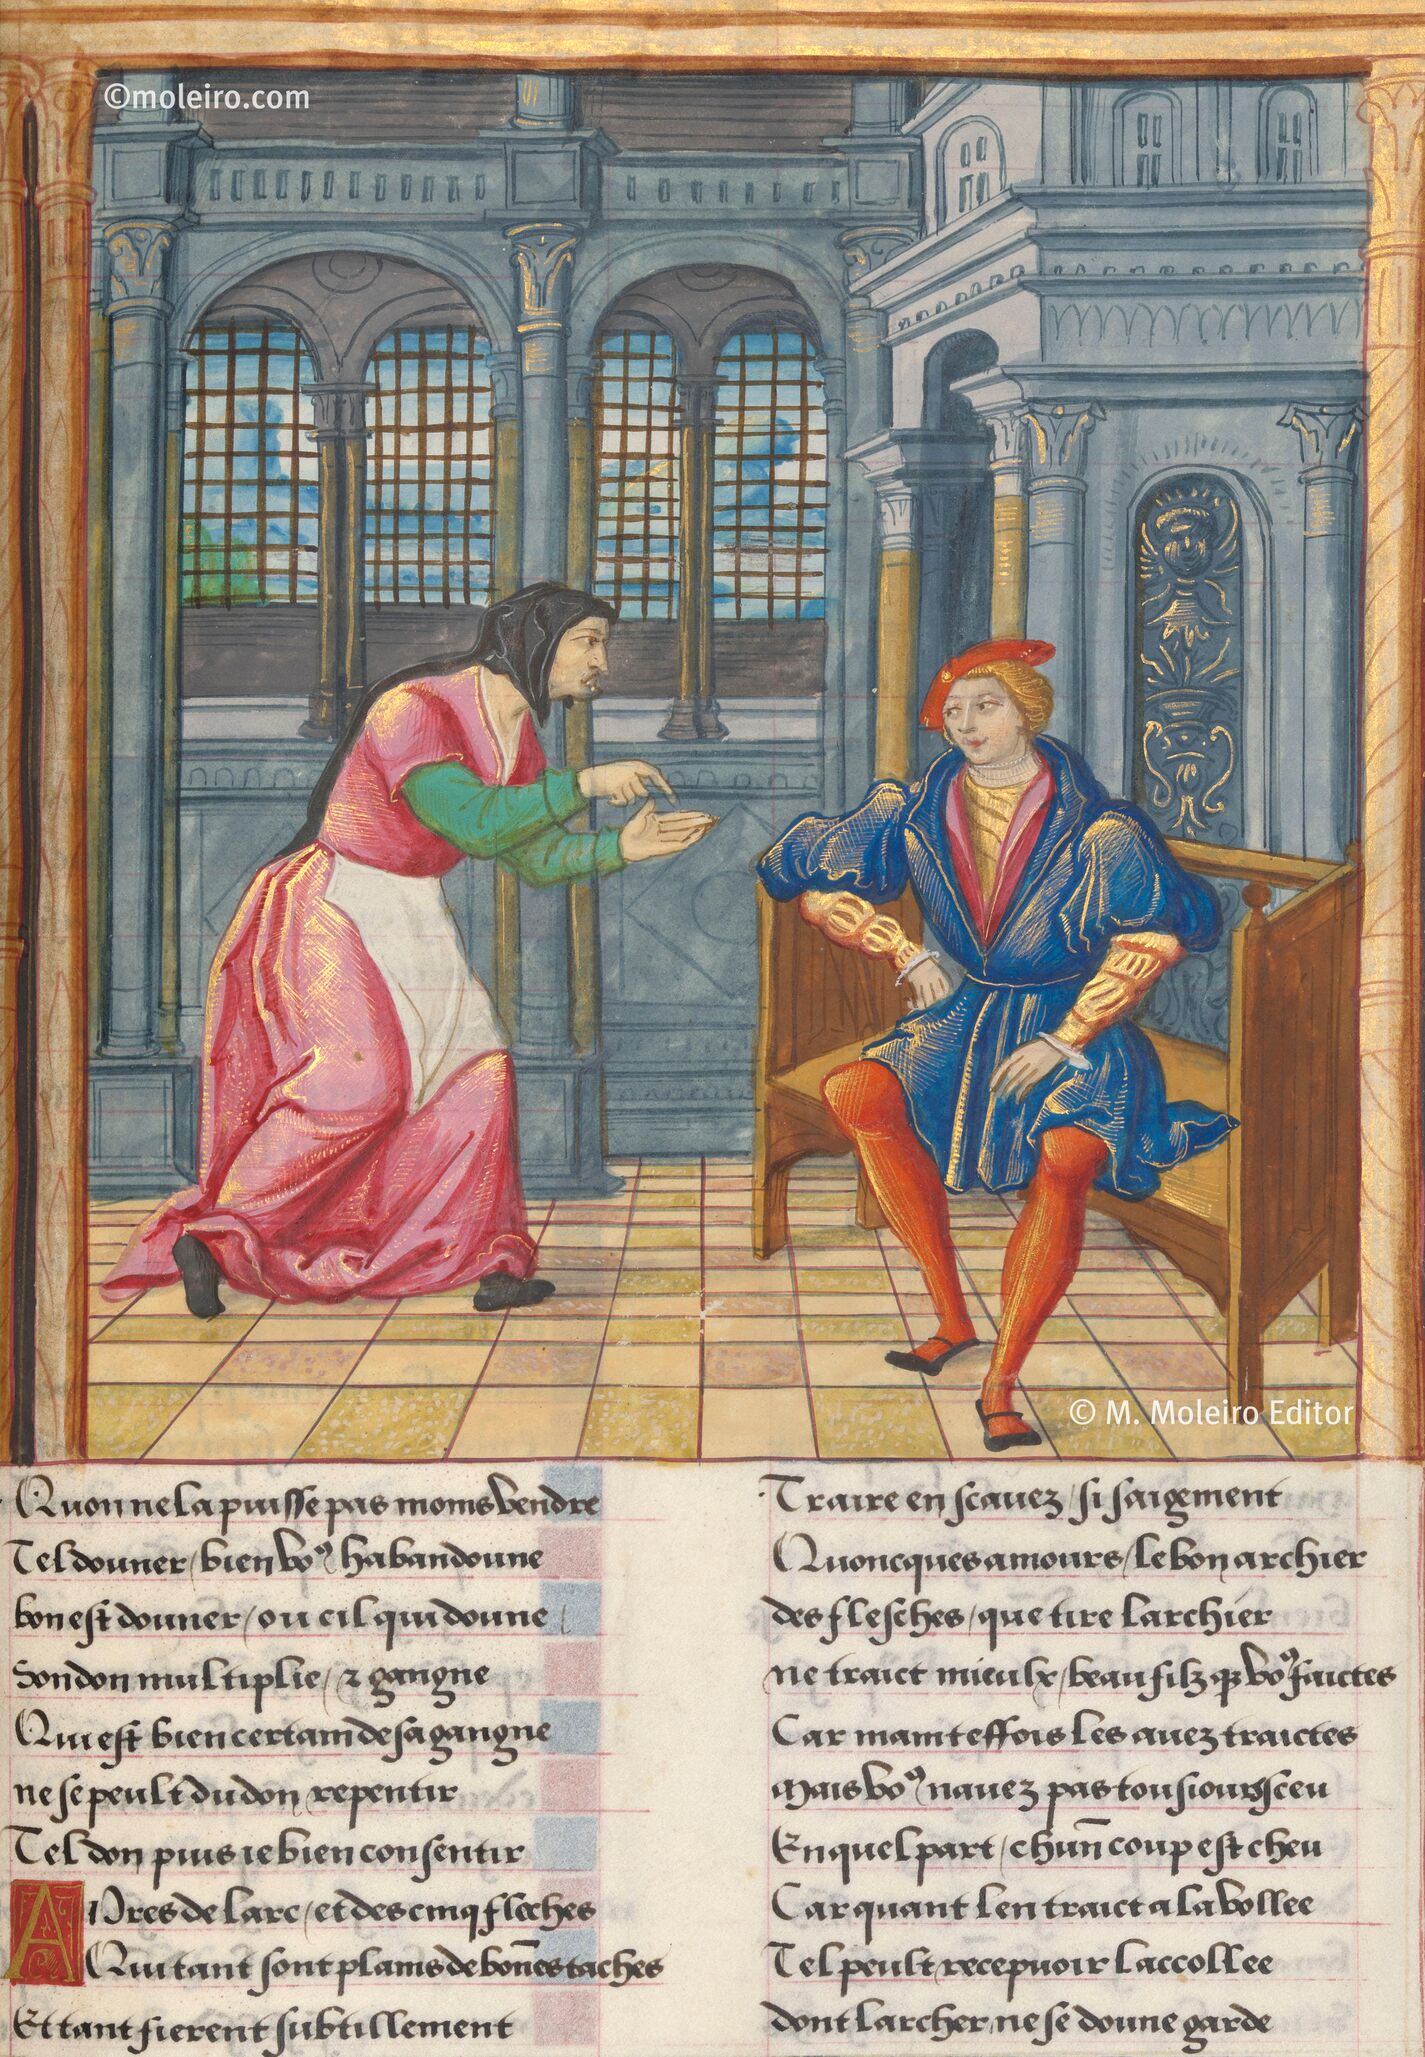 ©moleiro.com
© M. Moleiro Editor
Quon ne la puisse pas moins vendre
Tel donner / bien vo⁹ habandonne
bon est donner / ou cil qui donne /
Son don multiplie / ⁊ gangne
Qui est bien certain de sa gangne
ne se peult du don repentir
Tel don puis ie bien consentir
Apres de larc / et des cinq fleches
Qui tant sont plains de bōnes taches
Et tant fierent subtillement
Traire en scauez / si saigement
Quoncques amours / le bon archier
des flesches / que tire larchier
ne traict mieulx / beau filz q̄ vo⁹ faictes
Car mainteffois les auez traictes
Mais vo⁹ nauez pas tousiours sceu
En quel part / chūn coup est cheu
Car quant len traict a la vollee
Tel peult recepuoir laccollee
dont larcher ne se donne garde